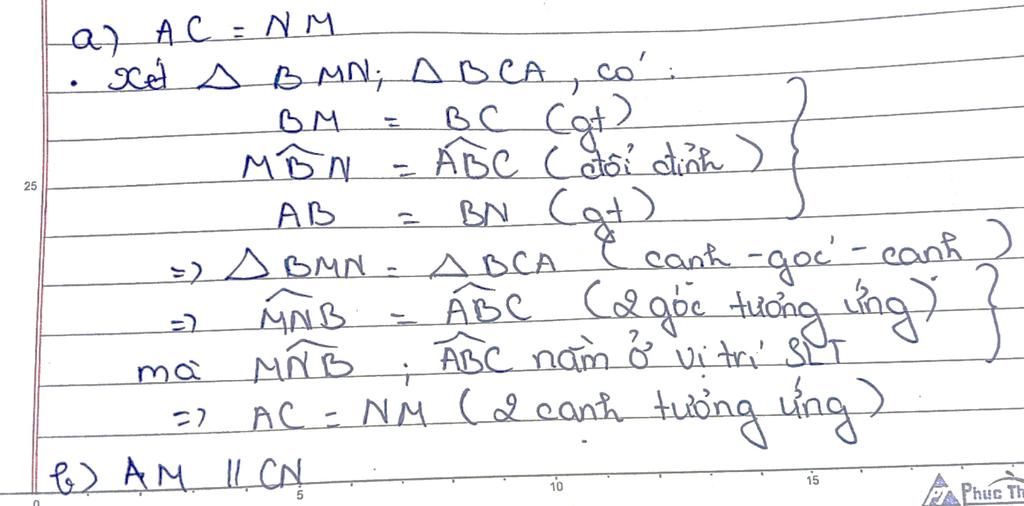 a) AC = NM
. Xét Δ BMN; Δ BCA, có:
BM = BC (gt)
MB̂N = AB̂C (đối đỉnh)
AB = BN (gt)
=> Δ BMN = Δ BCA (canh - goc - canh)
=> MN̂B = AB̂C (2 góc tưởng ứng)
mà MN̂B ; AB̂C nằm ở vị trí SLT
=> AC = NM (2 canh tưởng ứng)
b) AM // CN
25
0 5 10 15
Phuc Th